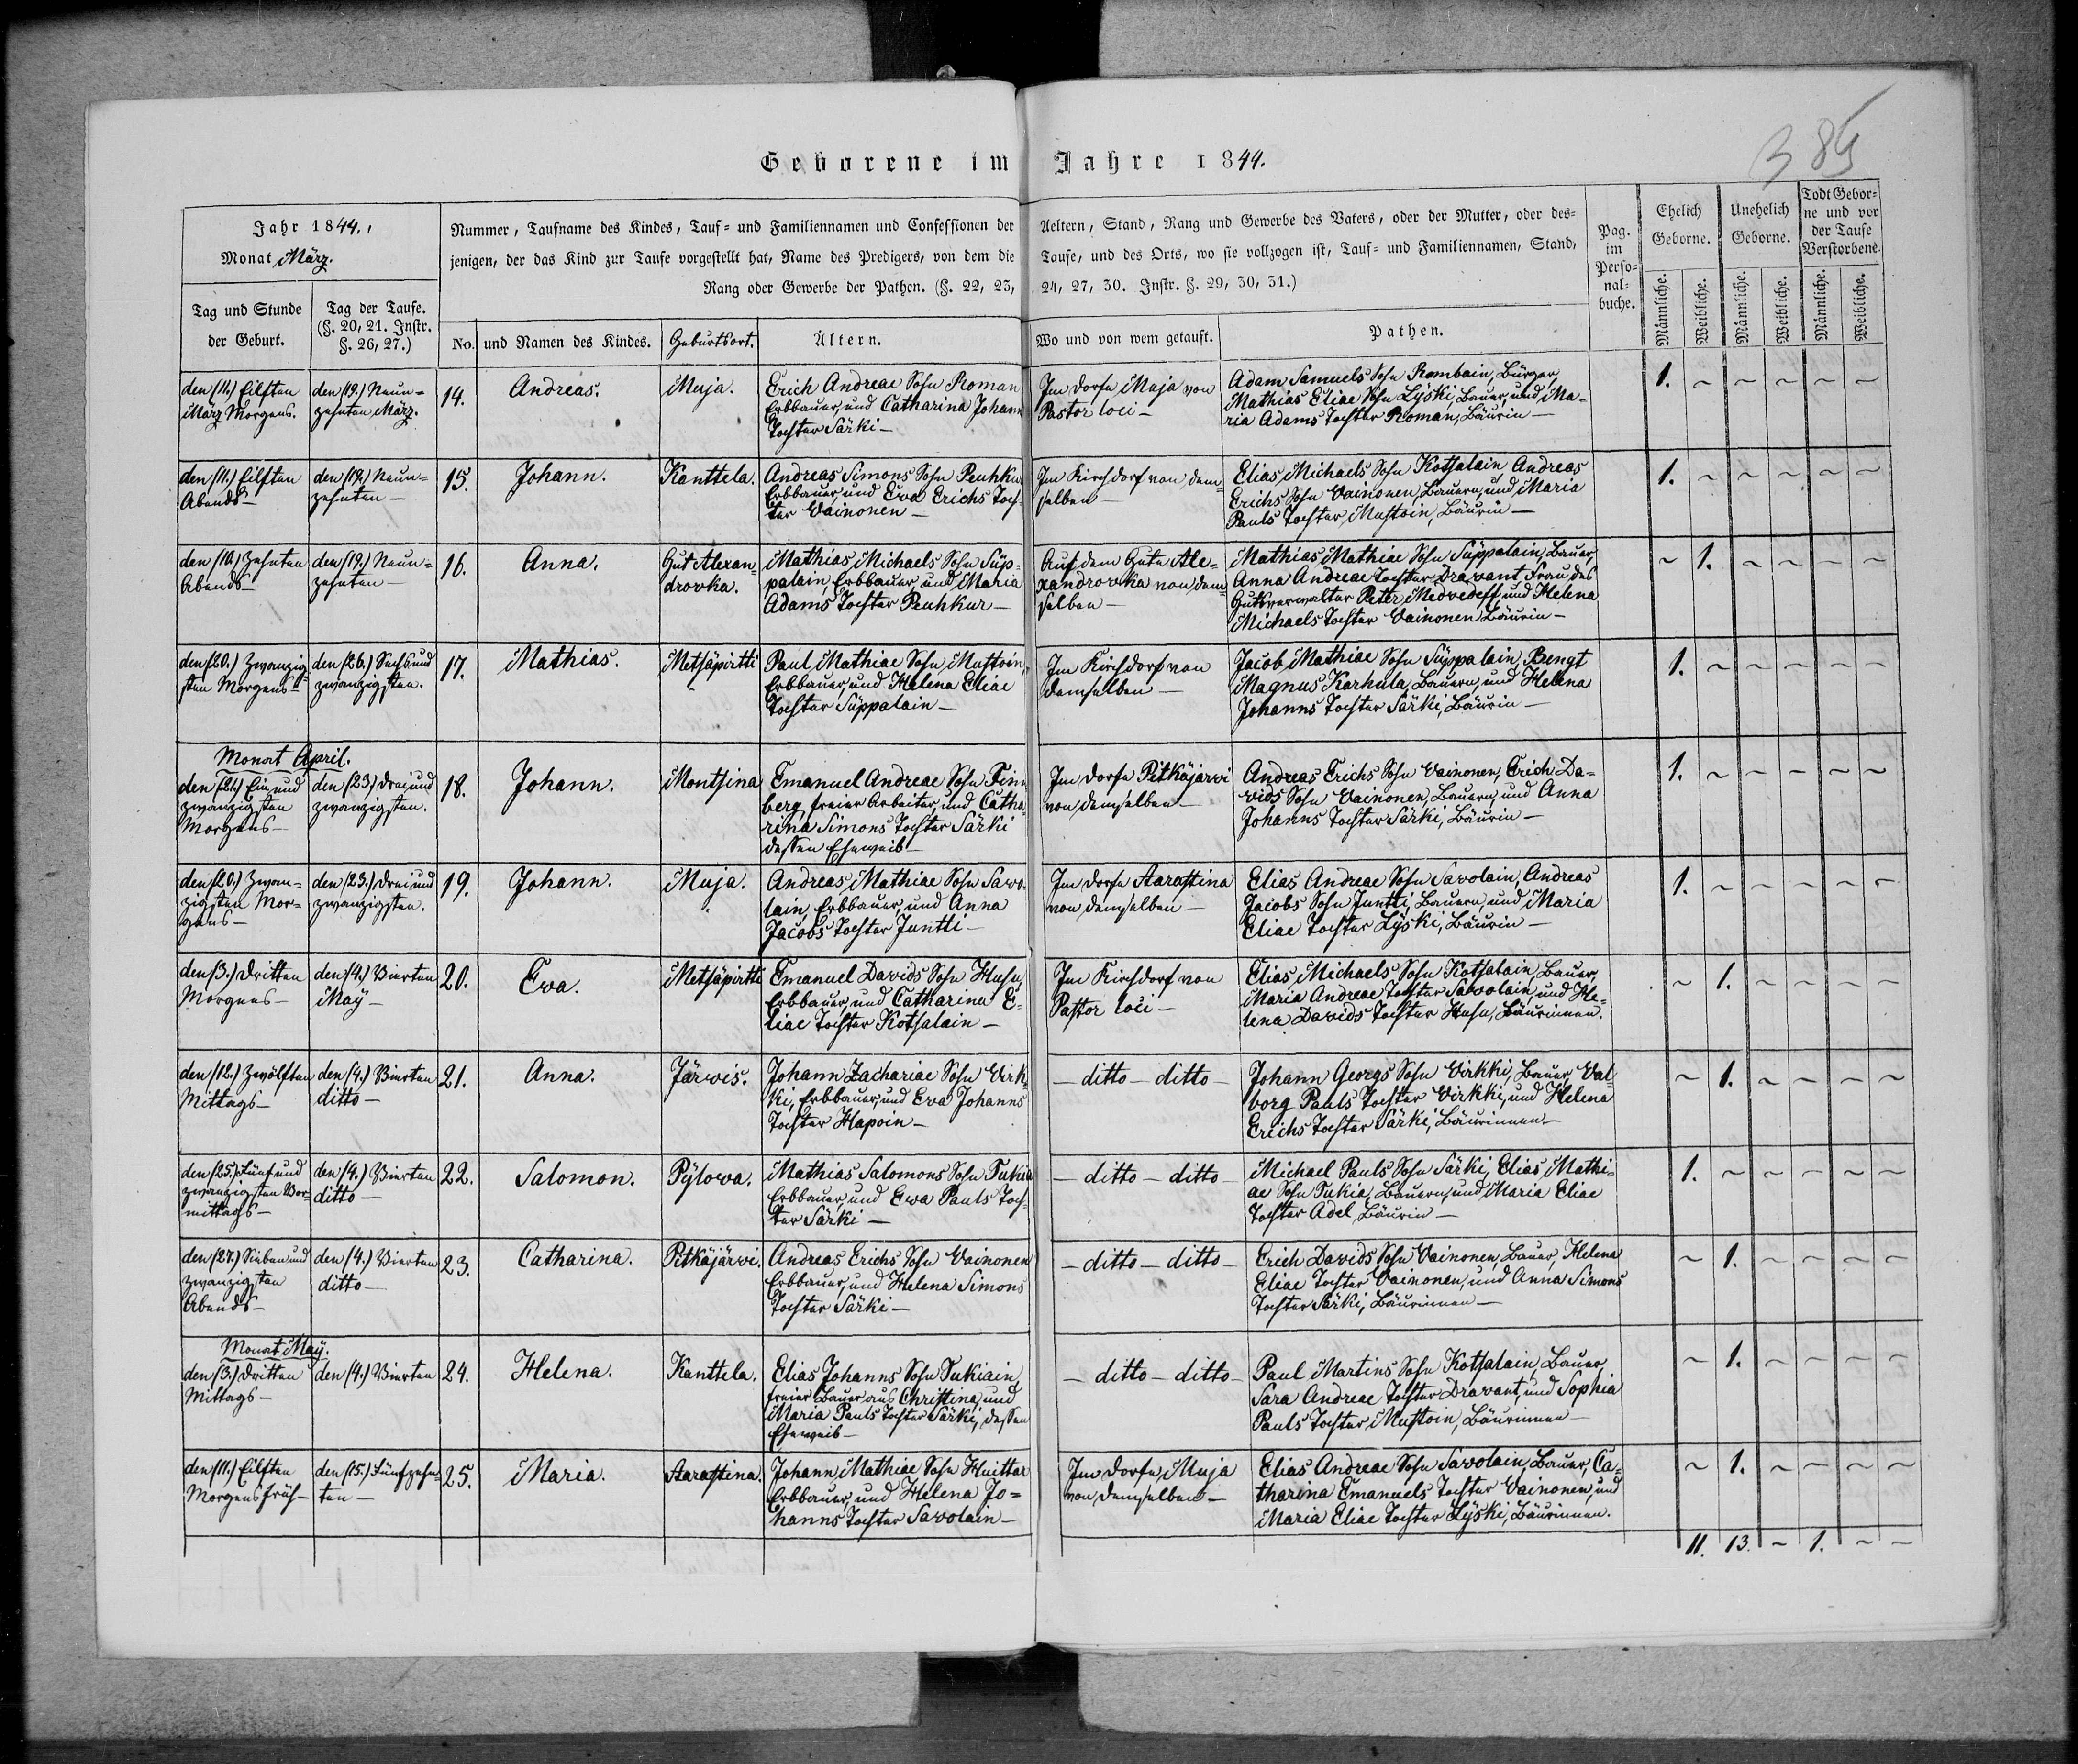 385
Geborene im Jahre 1844.
Jahr 1844.,
Monat März.
Nummer, Taufname des Kindes, Tauf- und Familiennamen und Confessionen der Aeltern, Stand, Rang und Gewerbe des Vaters, oder der Mutter, oder des-
jenigen, der das Kind zur Taufe vorgestellt hat, Name des Predigers, von dem die Taufe, und des Orts, wo sie vollzogen ist, Tauf- und Familiennamen, Stand,
Rang oder Gewerbe der Pathen. (§. 22, 23, 24, 27, 30. Instr. §. 29, 30, 31.)
Pag.
im
Perso-
nal-
buche.
Ehelich
Geborne.
Unehelich
Geborne.
Todt Gebor-
ne und vor
der Taufe
Verstorbene.
Männliche.
Weibliche.
Männliche.
Weibliche.
Männliche.
Weibliche.
Tag und Stunde
der Geburt.
Tag der Taufe.
(§. 20, 21. Instr.
§. 26, 27.)
No. und Namen des Kindes.
Geburtsort.
Ältern.
Wo und von wem getauft.
Pathen.
den (11.) Eilften
März Morgens.
den (19.) Neun-
zehnten März.
14.
Andreas.
Muja.
Erich Andreae Sohn Roman
Erbbauer, und Catharina Johann
Tochter Särki –
Im Dorfe Muja von
Pastor loci –
Adam Samuels Sohn Rombain, Bürger,
Mathias Eliae Sohn Lyski, Bauer, und Ma-
ria Adams Tochter Roman, Bäurin –
1. ~ ~ ~ ~ ~
den (11.) Eilften
Abends –
den (19.) Neun-
zehnten –
15.
Johann.
Kanttela.
Andreas Simons Sohn Peuhkur
Erbbauer, und Eva Erichs Toch-
ter Vainonen –
Im Kirchdorf von dem-
selben –
Elias Michaels Sohn Kotsalain, Andreas
Erichs Sohn Vainonen, Bauern, und Maria
Pauls Tochter Mustoin, Bäurin –
1. ~ ~ ~ ~ ~
den (10.) Zehnten
Abends –
den (19.) Neun-
zehnten –
16.
Anna.
Gut Alexan-
drovka.
Mathias Michaels Sohn Süp-
palain, Erbbauer, und Maria
Adams Tochter Peuhkur –
Auf dem Gute Ale-
xandrovka von dem-
selben –
Mathias Mathiae Sohn Süppalain, Bauer,
Anna Andreae Tochter Dravant, Frau des
Gutsverwalter Peter Medvedeff, und Helena
Michaels Tochter Vainonen Bäurin –
~ 1. ~ ~ ~ ~
den (20.) Zwanzig-
sten Morgens –
den (26.) Sechs und
zwanzigsten.
17.
Mathias.
Metsäpirtti
Paul Mathiae Sohn Mustoin,
Erbbauer, und Helena Eliae
Tochter Süppalain –
Im Kirchdorf von
demselben –
Jacob Mathiae Sohn Süppalain, Bengt
Magnus Karhula, Bauern, und Helena
Johanns Tochter Särki, Bäurin –
1. ~ ~ ~ ~ ~
Monat April.
den (21.) Ein und
zwanzigsten
Morgens –
den (23.) Drei und
zwanzigsten.
18.
Johann.
Montsina
Emanuel Andreae Sohn Finn
berg, freier Arbeiter, und Catha-
rina Simons Tochter Särki
dessen Eheweib –
Im Dorfe Pitkäjärvi
von demselben –
Andreas Erichs Sohn Vainonen, Erich Da-
vids Sohn Vainonen, Bauern, und Anna
Johanns Tochter Särki, Bäurin –
1. ~ ~ ~ ~ ~
den (20.) Zwan-
zigsten Mor-
gens –
den (23.) Drei und
zwanzigsten.
19.
Johann.
Muja.
Andreas Mathiae Sohn Savo-
lain, Erbbauer, und Anna
Jacobs Tochter Juntti –
Im Dorfe Aarastina
von demselben –
Elias Andreae Sohn Savolain, Andreas
Jacobs Sohn Juntti, Bauern, und Maria
Eliae Tochter Lyski, Bäurin –
1. ~ ~ ~ ~ ~
den (3.) Dritten
Morgens –
den (4.) Vierten
May –
20.
Eva.
Metsäpirtti
Emanuel Davids Sohn Husu,
Erbbauer, und Catharina E-
liae Tochter Kotsalain –
Im Kirchdorf von
Pastor loci –
Elias Michaels Sohn Kotsalain, Bauer,
Maria Andreae Tochter Savolain, und He-
lena Davids Tochter Husu, Bäurinnen.
~ 1. ~ ~ ~ ~
den (12.) Zwölften
Mittags –
den (4.) Vierten
ditto –
21.
Anna.
Järwis.
Johann Zachariae Sohn Virk-
ki, Erbbauer, und Eva Johanns
Tochter Hapoin –
– ditto – ditto –
Johann Georgs Sohn Virkki, Bauer, Val-
borg Pauls Tochter Virkki, und Helena
Erichs Tochter Särki, Bäurinnen –
~ 1. ~ ~ ~ ~
den (25.) Fünf und
zwanzigsten Vor-
mittags –
den (4.) Vierten
ditto –
22.
Salomon.
Pylowa.
Mathias Salomons Sohn Tukia
Erbbauer, und Ewa Pauls Toch-
ter Särki –
– ditto – ditto –
Michael Pauls Sohn Särki, Elias Mathi-
ae Sohn Tukia, Bauern, und Maria Eliae
Tochter Adel, Bäurin –
1. ~ ~ ~ ~ ~
den (27.) Sieben und
zwanzigsten
Abends –
den (4.) Vierten
ditto –
23.
Catharina.
Pitkäjärvi.
Andreas Erichs Sohn Vainonen
Erbbauer, und Helena Simons
Tochter Särki –
– ditto – ditto –
Erich Davids Sohn Vainonen, Bauer, Helena
Eliae Tochter Vainonen, und Anna Simons
Tochter Särki, Bäurinnen –
~ 1. ~ ~ ~ ~
Monat May.
den (3.) Dritten
Mittags –
den (4.) Vierten
24.
Helena.
Kanttela.
Elias Johanns Sohn Tukiain,
freier Bauer aus Christina, und
Maria Pauls Tochter Särki, dessen
Eheweib –
– ditto – ditto –
Paul Martins Sohn Kotsalain, Bauer,
Sara Andreae Tochter Dravant, und Sophia
Pauls Tochter Mustoin, Bäurinnen –
~ 1. ~ ~ ~ ~
den (11.) Eilften
Morgens früh –
den (15.) Fünfzehn-
ten –
25.
Maria.
Aarastina.
Johann Mathiae Sohn Huittar
Erbbauer, und Helena Jo-
hanns Tochter Savolain –
Im Dorfe Muja
von demselben –
Elias Andreae Sohn Savolain, Bauer, Ca-
tharina Emanuels Tochter Vainonen, und
Maria Eliae Tochter Lyski, Bäurinnen.
~ 1. ~ ~ ~ ~
11. 13. ~ 1. ~ ~